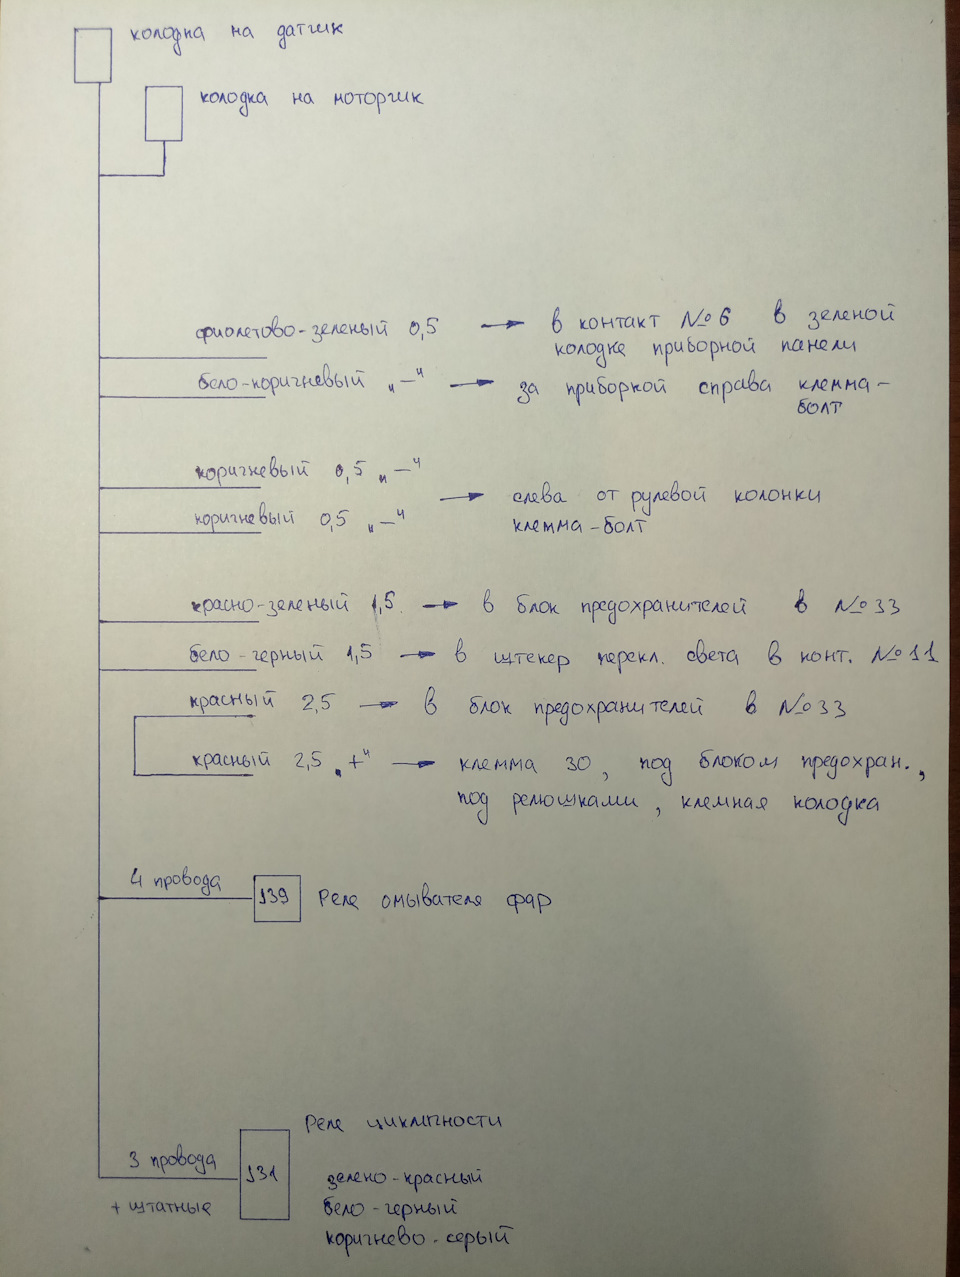 колодка на датчик
колодка на моторчик
фиолетово-зеленый 0,5 → в контакт №6 в зеленой
колодке приборной панели
бело-коричневый „–" → за приборкой справа клемма-
болт
коричневый 0,5 „–"
коричневый 0,5 „–" → слева от рулевой колонки
клемма-болт
красно-зеленый 1,5 → в блок предохранителей в №33
бело-черный 1,5 → в штекер перекл. света в конт. №11
красный 2,5 → в блок предохранителей в №33
красный 2,5 „+" → клемма 30, под блоком предохран.,
под релюшками, клемная колодка
4 провода 139 Реле омывателя фар
Реле цикличности
3 провода 131
+ штатные
зелено-красный
бело-черный
коричнево-серый